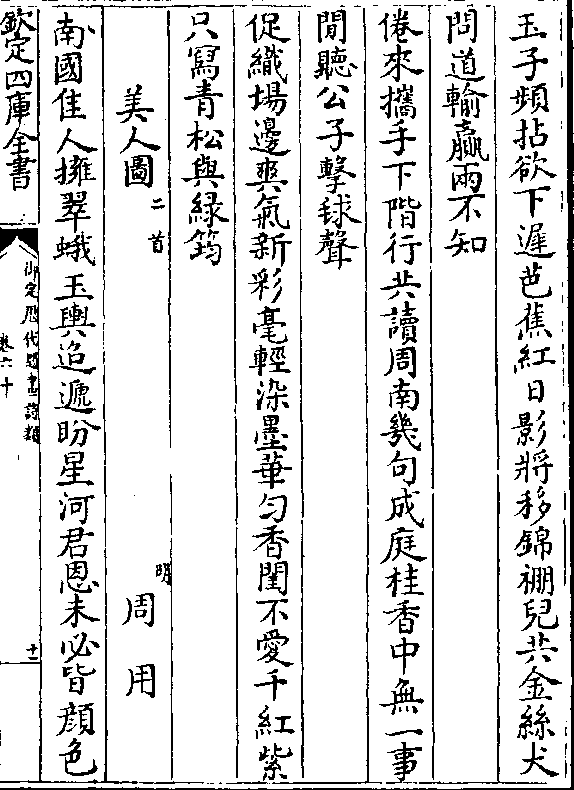 玉子頻拈欲下遲芭蕉紅日影將移錦襉兒共金絲犬
問道輸贏兩不知
倦來攜手下階行共讀周南幾句成庭桂香中無一事
閒聽公子擊毬聲
促織場邊爽氣新彩毫輕染墨華勻香閨不愛千紅紫
只寫青松與緑筠
美人圖二首　明周用
南國佳人擁翠蛾玉輿迢遞盼星河君恩未必皆顔色
欽定四庫全書
御定歴代題畫詩類
卷六十
十一